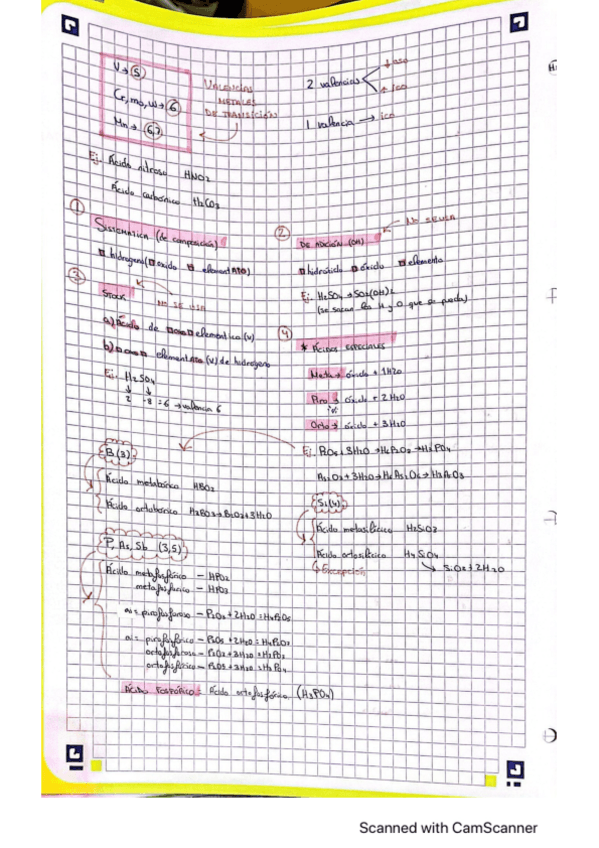 V → 5
Cr, mo, W → 6
Mn → 6,7
VALENCIAS
METALES
DE TRANSICIÓN
2 valencias
↓ oso
↑ ico
1 valencia → ico
Ej: Ácido nitroso HNO2
Ácido carbónico H2CO3
① SISTEMÁTICA (de composición)
hidrogeno( óxido elementATO)
② DE ADICIÓN (OH)
NO SE USA
hidróxido óxido elemento
Ej: H2SO4 → SO2(OH)2
(se sacan los H y O que se pueda)
③ STOCK
NO SE USA
a) Ácido de elementico (v)
b) elementATO (v) de hidrógeno
Ej: H2SO4
2 -8 = 6 → valencia 6
④ * ÁCIDOS ESPECIALES
Meta → óxido + 1H2O
Piro → óxido + 2H2O
Orto → óxido + 3H2O
Ej: P2O5 + 3H2O → H6P2O8 → H3PO4
As2O3 + 3H2O → H6As2O6 → H3AsO3
B (3)
Ácido metabórico HBO2
Ácido ortobórico H3BO3 → B2O3 + 3H2O
Si (4)
Ácido metasilícico H2SiO3
Ácido ortosilícico H4SiO4
↳ Excepción
SiO2 + 2H2O
P, As, Sb (3,5)
Ácido metafosforoso – HPO2
metafosfórico – HPO3
pirofosforoso – P2O3 + 2H2O = H4P2O5
pirofosfórico – P2O5 + 2H2O = H4P2O7
ortofosforoso – P2O3 + 3H2O = H3PO3
ortofosfórico – P2O5 + 3H2O = H3PO4
ÁCIDO FOSFÓRICO = Ácido ortofosfórico (H3PO4)
Scanned with CamScanner